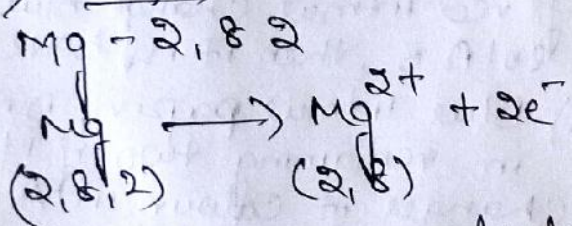 Mg - 2, 8 2
Mg ⟶ Mg²⁺ + 2e⁻
(2,8,2) (2,8)